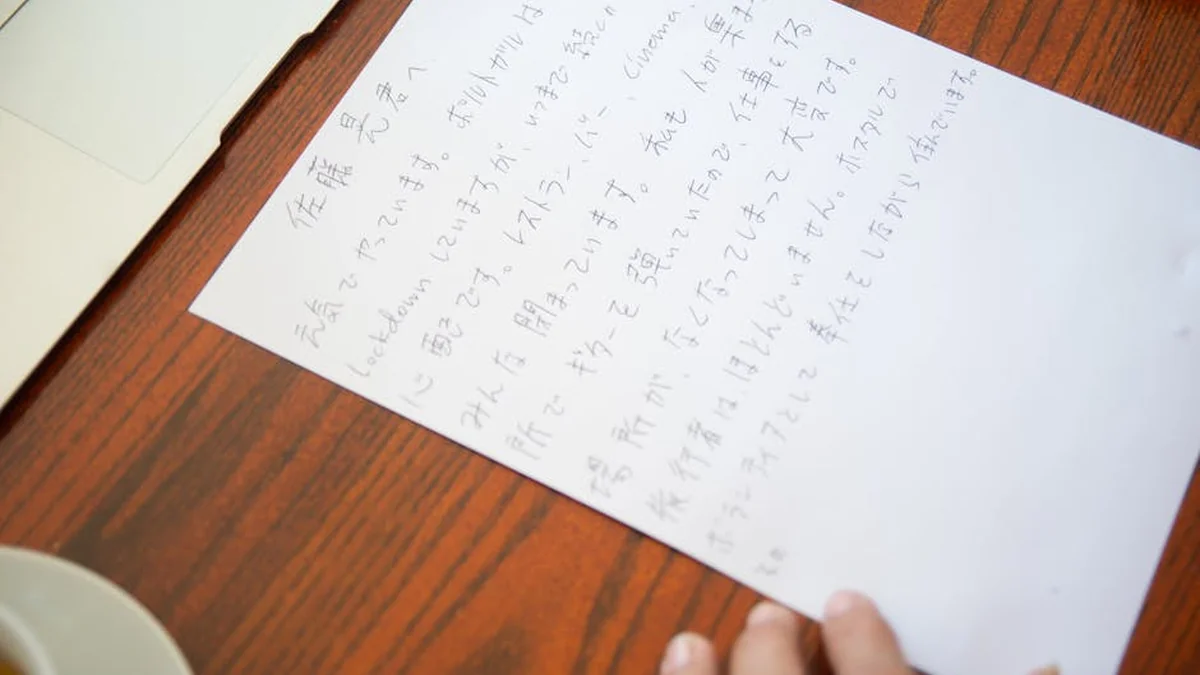 佐藤 晃君へ
元気でやっています。ポルトガルは
Lockdownしていますが、いつまで続くか
心配です。レストラン、バー、Cinema、
みんな閉まっています。私も人が集ま
所でギターを弾いていたので、仕事をする
場所が、なくなってしまって大変です。
旅行者は、ほとんどいません。ホスタルで
ボランティアとして奉仕をしながら休んでいます。